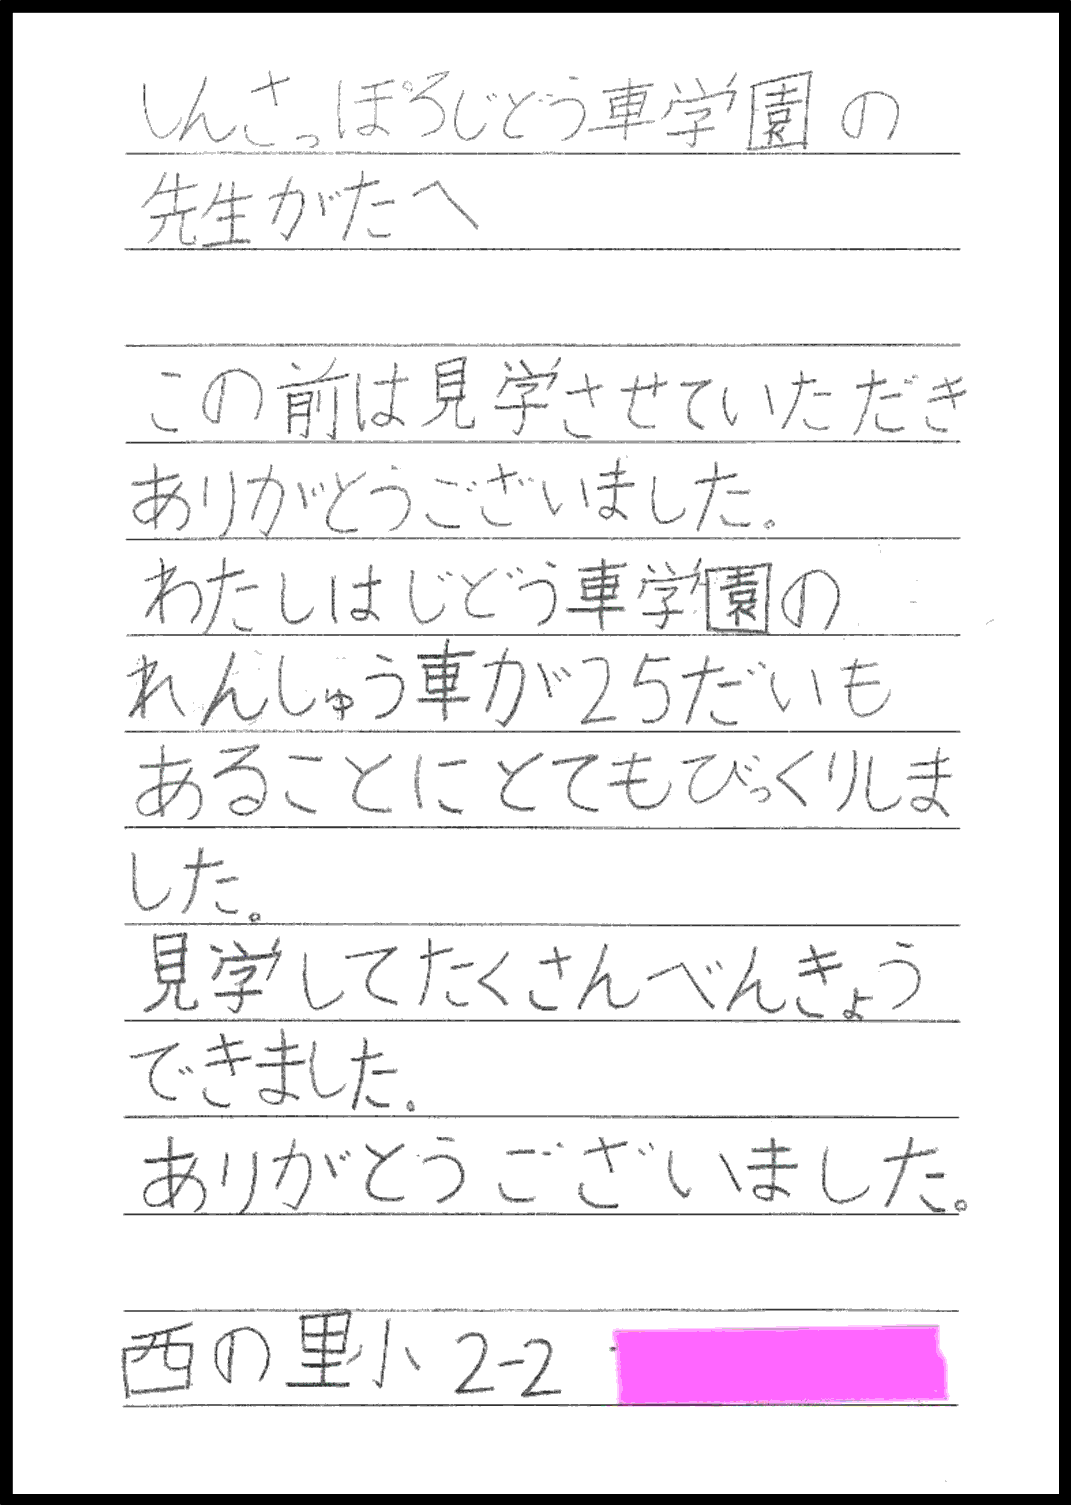 しんさっぽろじどう車学園の
先生がたへ
この前は見学させていただき
ありがとうございました。
わたしはじどう車学園の
れんしゅう車が25だいも
あることにとてもびっくりしま
した。
見学してたくさんべんきょう
できました。
ありがとうございました。
西の里小 2-2